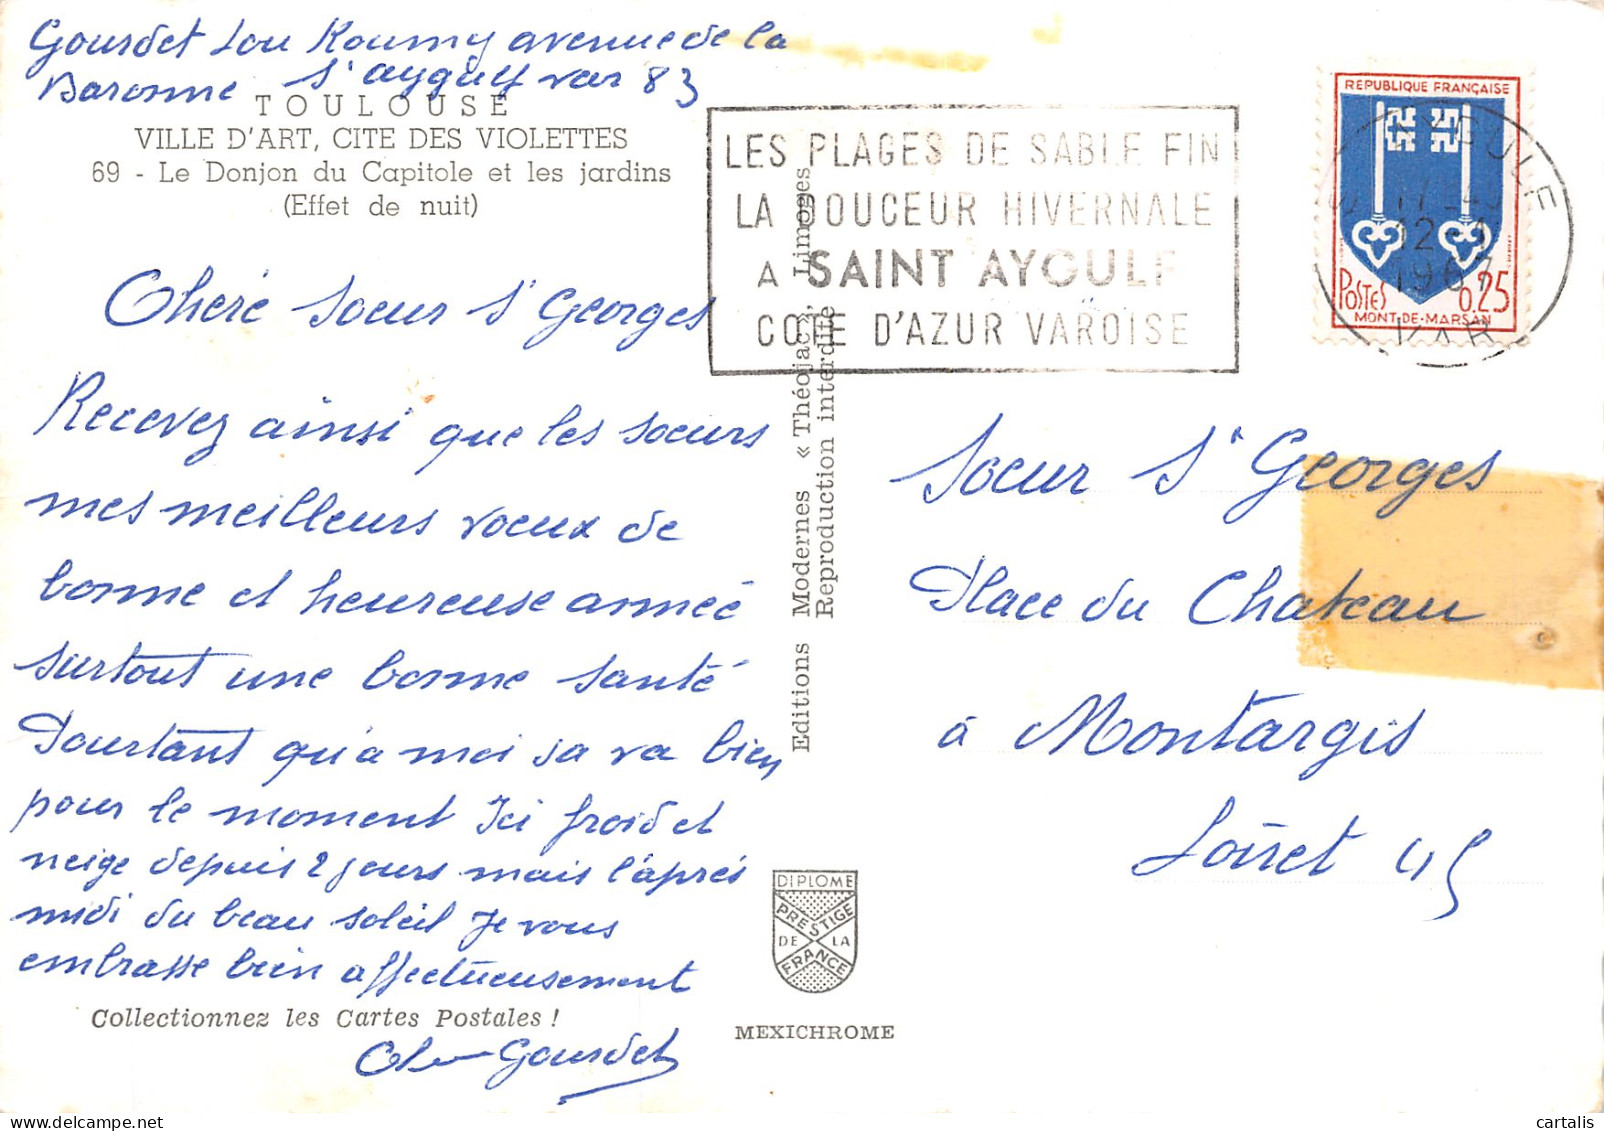 Gourdet Lou Roumy avenue de la
Baronne St aygulf var 83
TOULOUSE
VILLE D'ART, CITE DES VIOLETTES
69 - Le Donjon du Capitole et les jardins
(Effet de nuit)
Cheré Soeur St Georges
Recevez ainsi que les soeurs
mes meilleurs voeux de
bonne et heureuse année
surtout une bonne santé
Pourtant qu'a moi sa va bien
pour le moment Ici froid et
neige depuis 2 jours mais l'aprés
midi du beau soleil Je vous
embrasse bien affectueusement
Collectionnez les Cartes Postales !
Gourdet
Editions Modernes « Théojac », Limoges
Reproduction interdite
DIPLOME
PRESTIGE
DE LA
FRANCE
MEXICHROME
LES PLAGES DE SABLE FIN
LA DOUCEUR HIVERNALE
A SAINT AYGULF
COTE D'AZUR VAROISE
REPUBLIQUE FRANÇAISE
POSTES
0,25
MONT-DE-MARSAN
12-1
1967
VAR
Soeur St Georges
Place du Chateau
à Montargis
Loiret 45
cartalis
delcampe.net